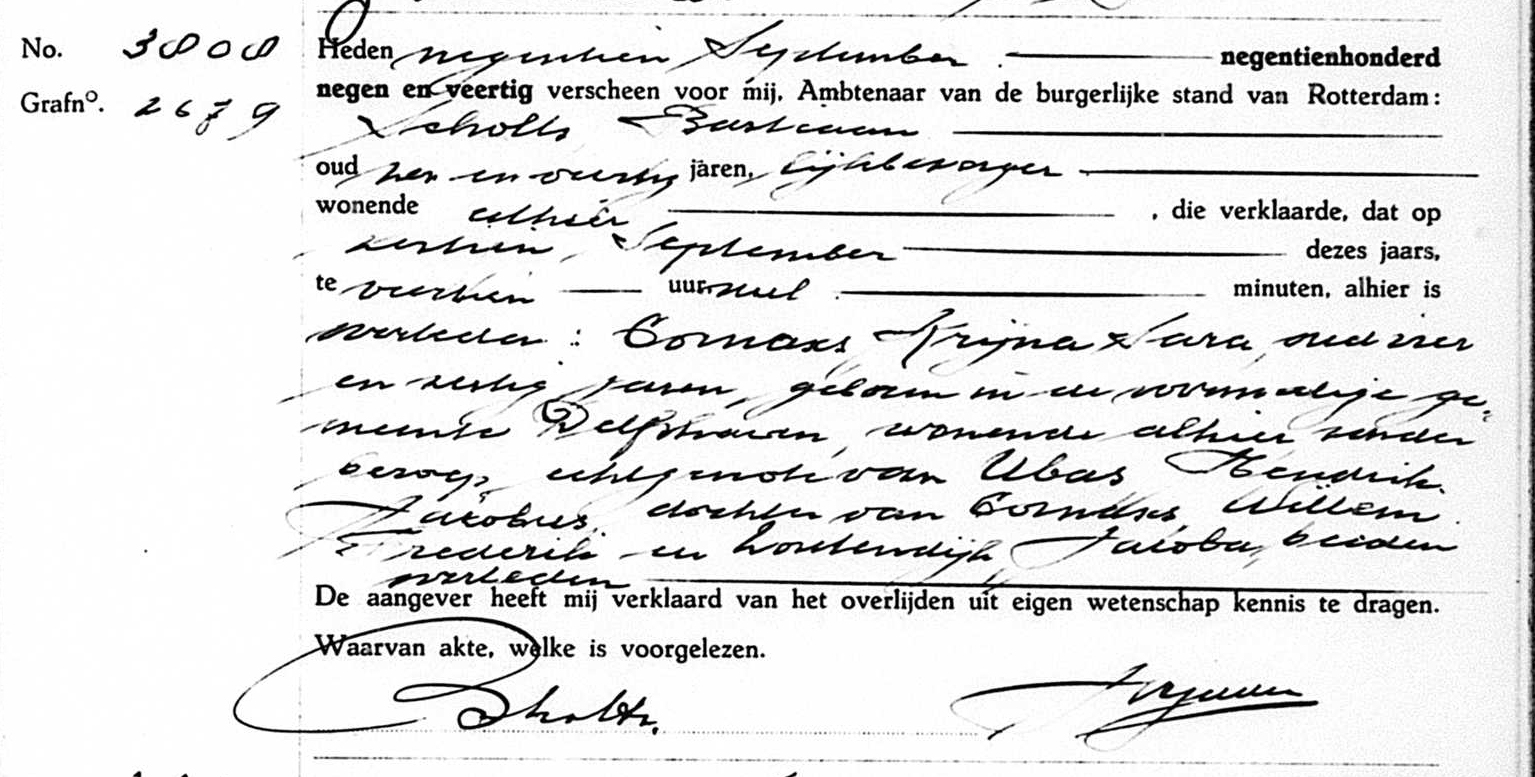 No. 3808 Heden negentien September negentienhonderd
Grafno. 2679 negen en veertig verscheen voor mij, Ambtenaar van de burgerlijke stand van Rotterdam:
Scholts Bastiaan
oud zes en veertig jaren, lijkbezorger
wonende alhier , die verklaarde, dat op
zestien September dezes jaars,
te veertien uur nul minuten, alhier is
overleden : Cornaxs Krijna Sara, oud vier
en zestig jaren, geboren in de voormalige ge-
meente Delfshaven, wonende alhier zonder
beroep, echtgenote van Ubas Hendrik
Jacobus, dochter van Cornaxs, Willem
Frederik en Houtendijk, Jacoba, beiden
overleden
De aangever heeft mij verklaard van het overlijden uit eigen wetenschap kennis te dragen.
Waarvan akte, welke is voorgelezen.
BScholts.